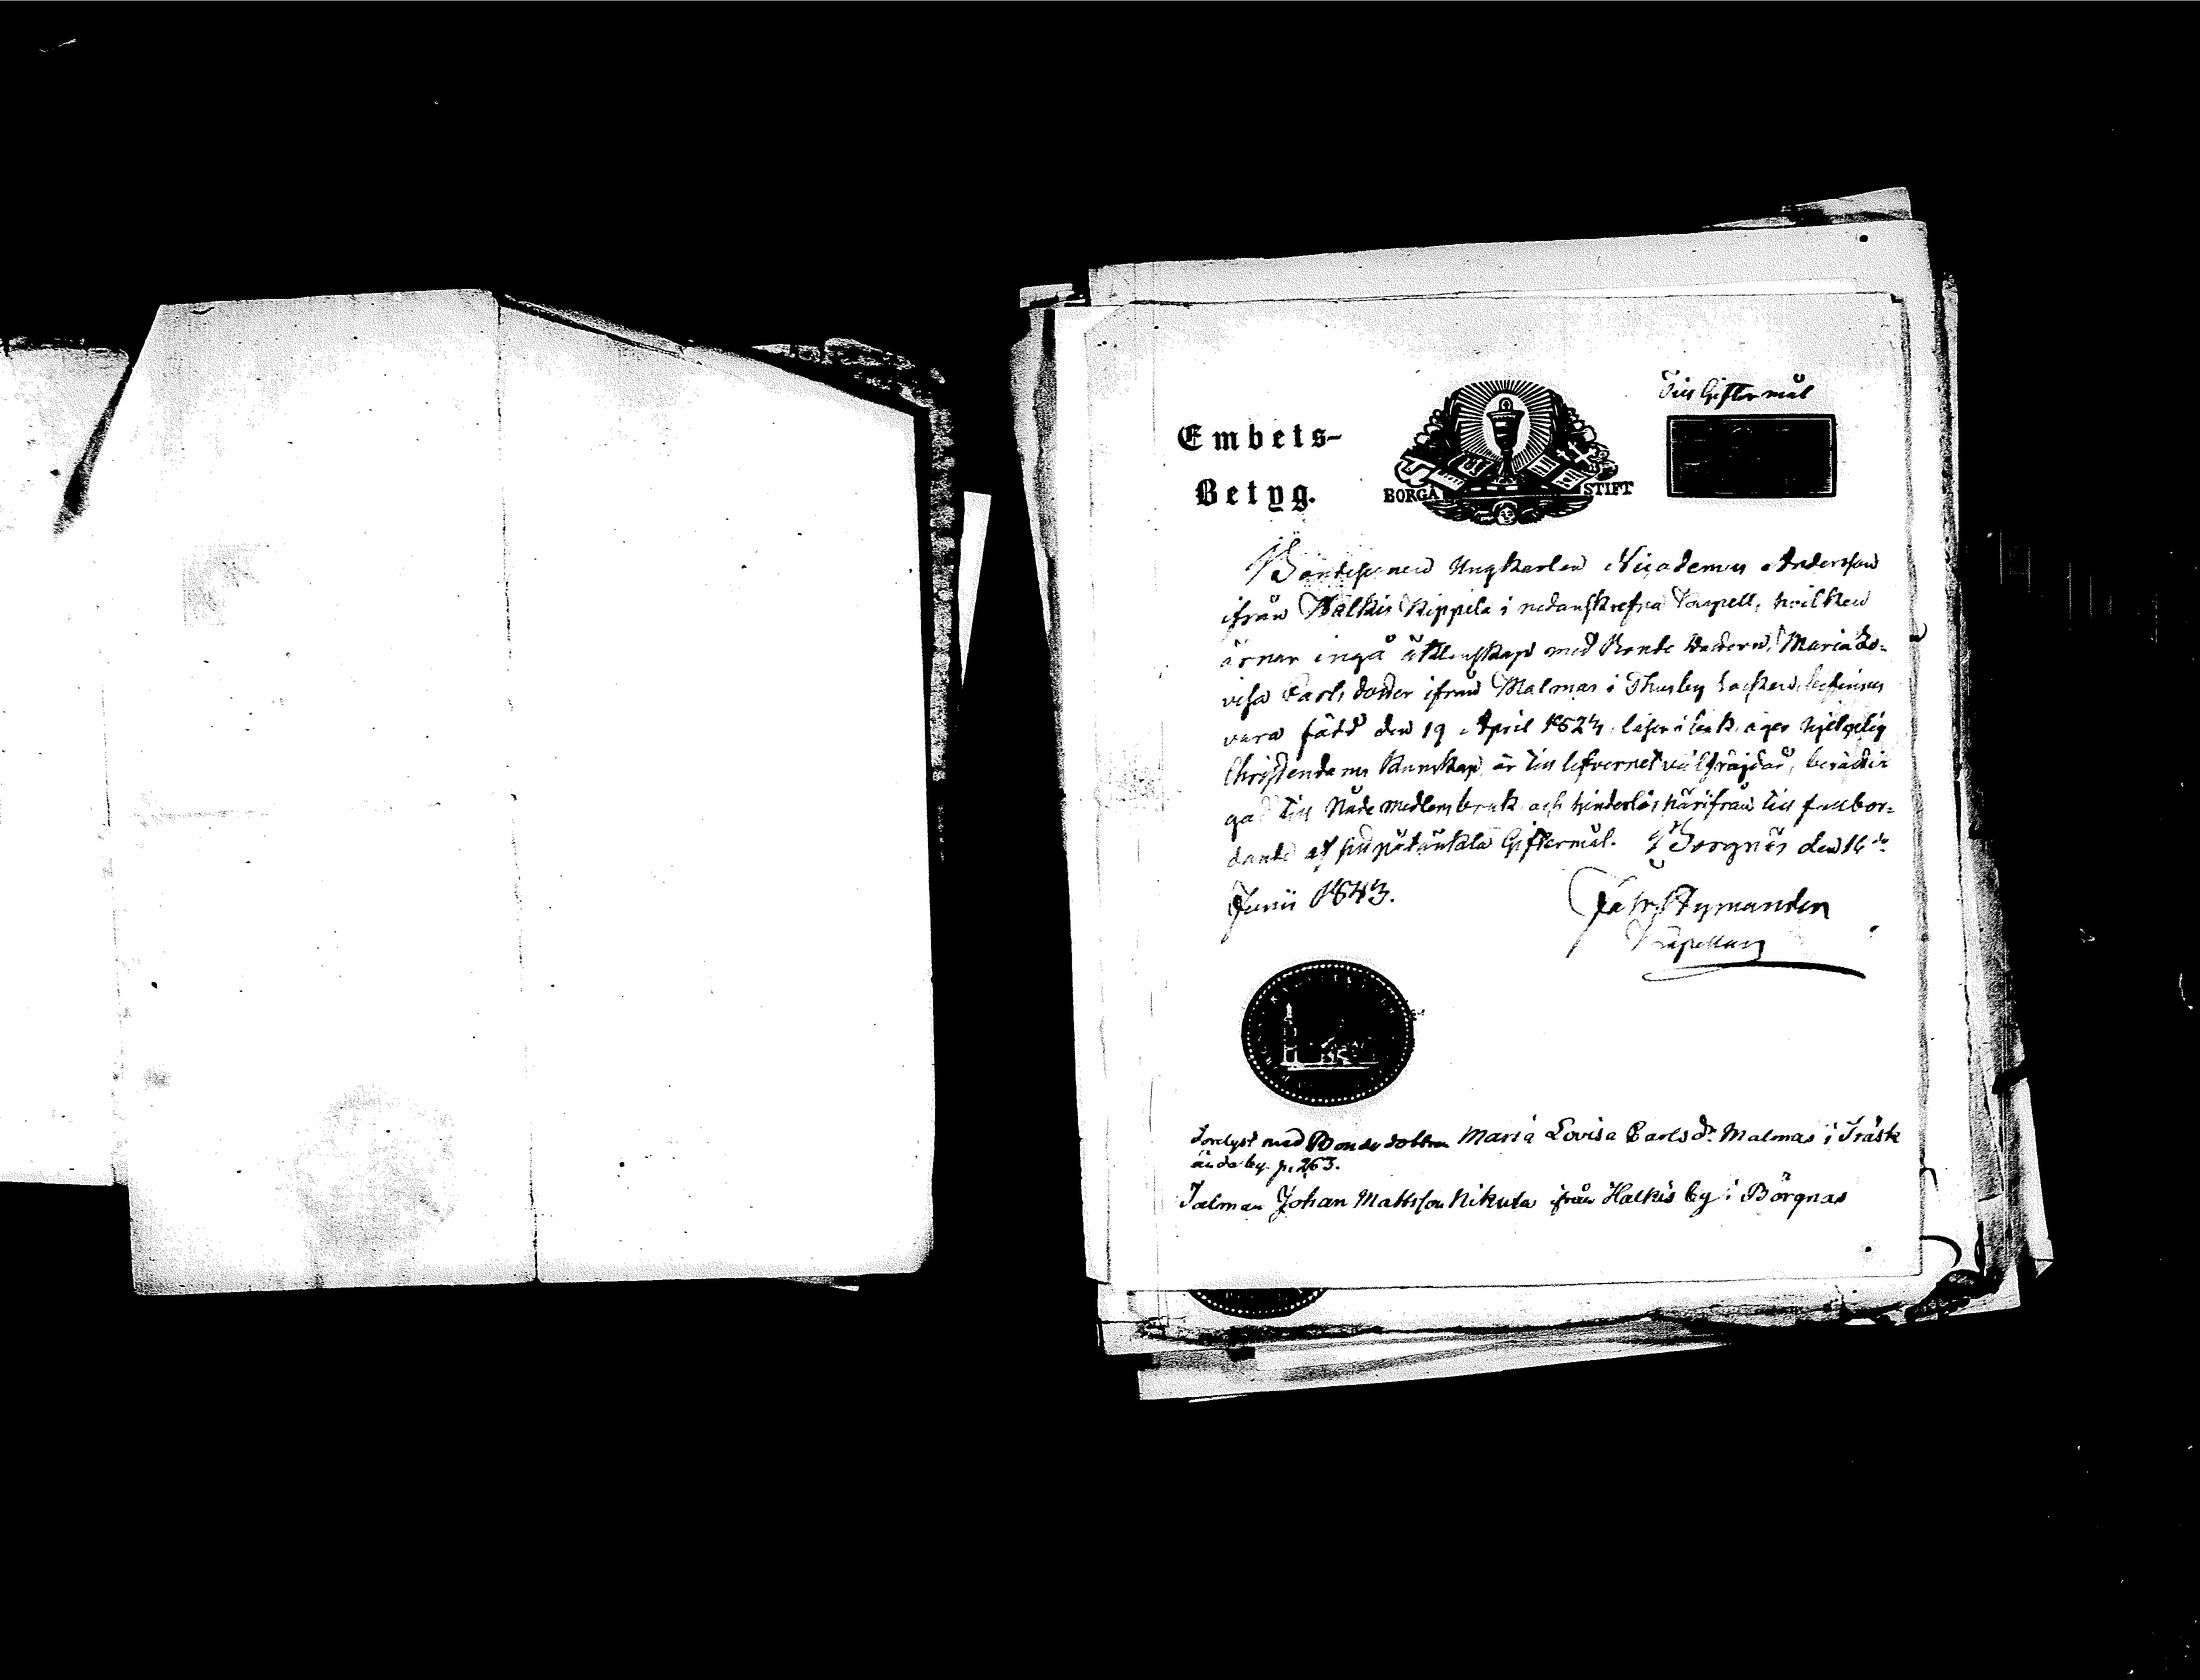 Till Giftermål
Embets-
Betyg.
BORGÅ STIFT
Bondesonen Ungkarlen Nicodemus Andersson
ifrån Halkis Kippila i nedanskrefna Capell, hvilken
ärnar ingå äktenskap med Bonde dottern Maria Lo-
visa Carls dotter ifrån Malmas i Thusby Socken, befinnes
vara född den 19 April 1824, läser i bok, äger hjelpelig
Christendoms kunskap, är till lefvernet välfräjdad, berätti-
gad till Nådemedlens bruk och hinderlös härifrån till fullbor-
dande af sin påtänkta Giftermål. Borgnäs den 16de
Junii 1843.
Nymander
Capellan
Fordlyst med Bonde dottren Maria Lovisa Carls dr Malmas i Träsk
ända by. p. 263.
Talman Johan Mattsson Nikula ifrån Halkis by i Borgnäs